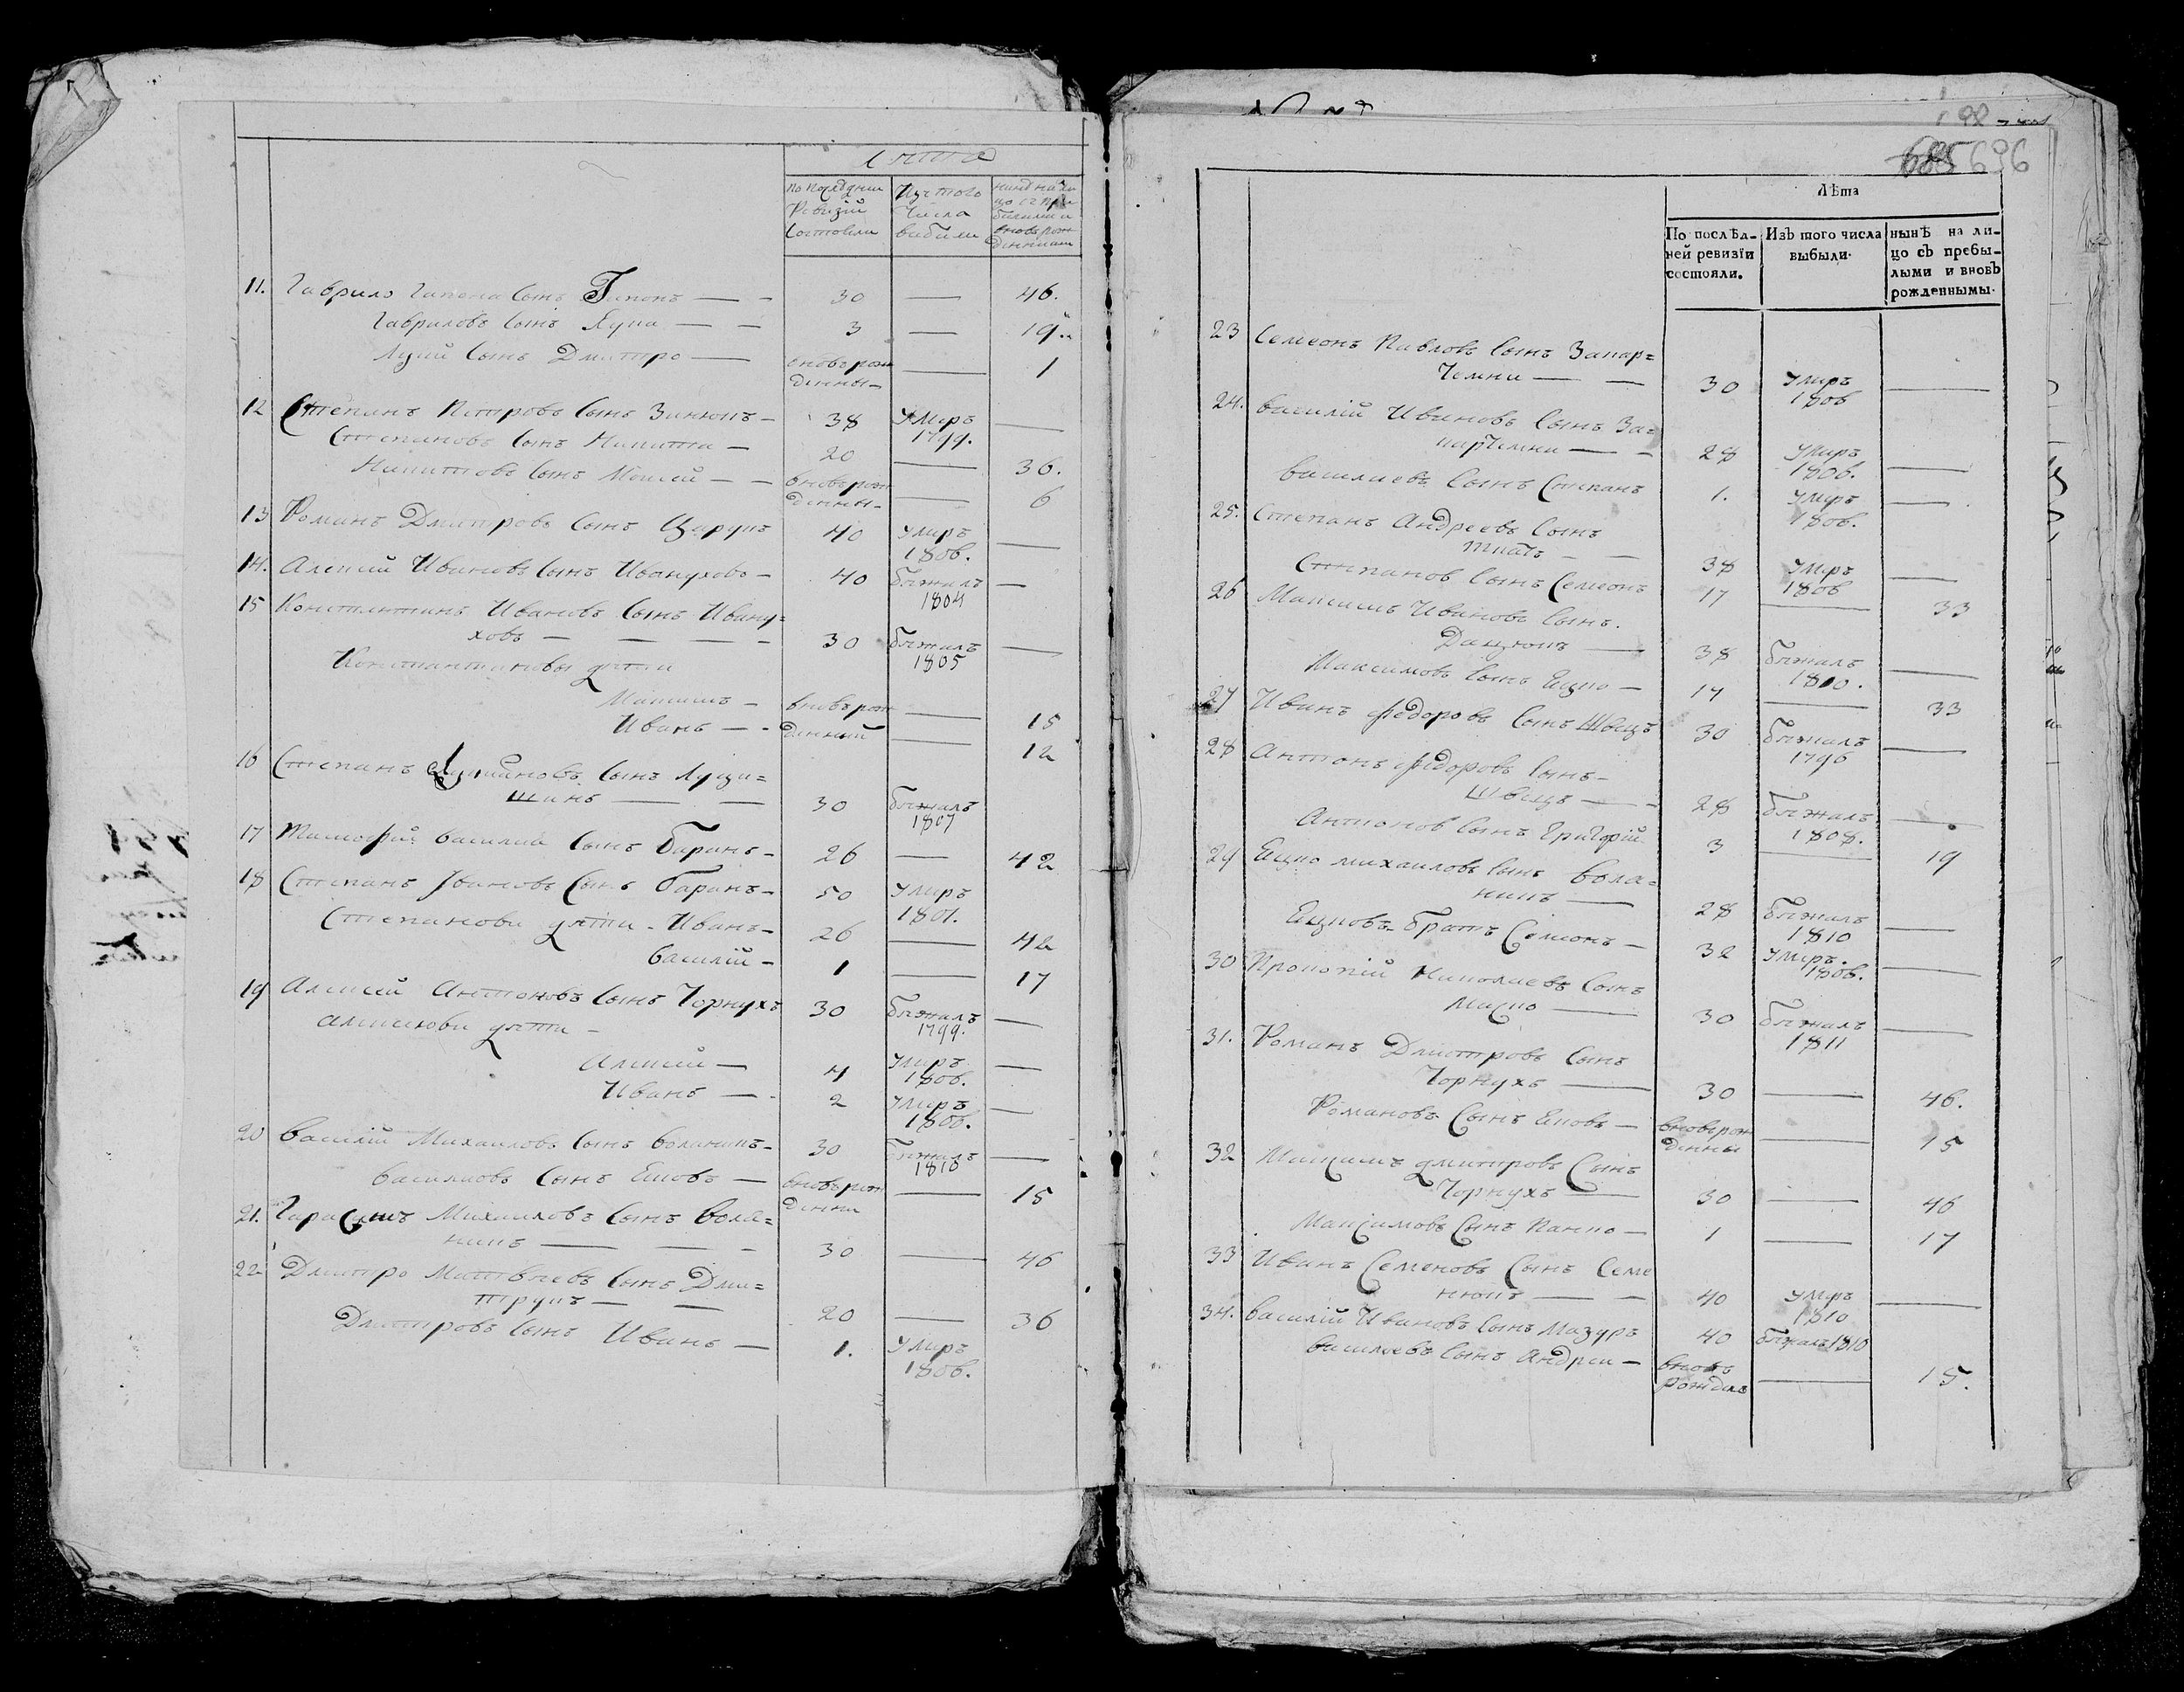 лѣта
По послѣднѣй
Ревизіи
состояли
Изъ того
числа
выбыли
нынѣ на ли
цо
вновь рож
денными
11. Гаврило сынъ Гапонъ — 30 — 46.
Гавриловъ сынъ — 3 — 19.
сынъ Дмитро — вновь рож
денны — 1
12 Степанъ Петровъ сынъ — 38 умиръ
1799. —
Степановъ сынъ Никита — 20 — 36.
Никитовъ сынъ Моисей — вновь рож
денны — 6
13 Романъ Дмитровъ сынъ 40 умиръ
1806. —
14. Алексий Ивановъ сынъ Ивануховъ — 40 бѣжалъ
1804 —
15 Константинъ Ивановъ сынъ Ивану=
ховъ — 30 бѣжалъ
1805 —
Константиновы дѣти
Максимъ — вновь рож — 15
Иванъ — денный — 12
16 Степанъ сынъ Луци=
шинъ — 30 бѣжалъ
1807
17 Тимофій Василіи сынъ Баранъ — 26 — 42
18 Степанъ Ивановъ сынъ Баранъ — 50 умиръ
1801.
Степанови дѣти — Иванъ — 26 — 42
Василій — 1 — 17
19 Алексій Антоновъ сынъ Чорнухъ 30 бѣжалъ
1799. —
Алексіови дѣти —
Алексій — 4 умиръ
1806. —
Иванъ — 2 умиръ
1806. —
20 Василій Михаиловъ сынъ Воланикъ — 30 бѣжалъ
1810 —
Василиовъ сынъ Яковъ — вновь рож
денни — 15
21. Гарасимъ Михаиловъ сынъ Вола=
никъ — 30 — 46
22 Дмитро Матвѣевъ сынъ Дми=
трукъ — 20 — 36
Дмитровъ сынъ Иванъ — 1. умиръ
1806.
92
685 696
Лѣта
По послѣд-
ней ревизіи
состояли.
Изъ того числа
выбыли.
нынѣ на ли-
цо съ пребы-
лыми и вновь
рожденнымы.
23 Семеонъ Павловъ сынъ Запар=
Чемни — 30 умиръ
1806 —
24. Василій Ивановъ сынъ За=
парчемни — 28 умиръ
1806. —
Василиевъ сынъ Степанъ 1. умиръ
1806. —
25. Степанъ Андреевъ сынъ
Ткачъ — 38 умиръ
1806 —
Степановъ сынъ Семеонъ 17 — 33
26 Максимъ Ивановъ сынъ
Дацюкъ — 38 бѣжалъ
1810. —
Максимовъ сынъ Яцко — 17 — 33
27 Иванъ Федоровъ сынъ Швецъ 30 бѣжалъ
1796 —
28 Антонъ Федоровъ сынъ —
Швецъ — 28 бѣжалъ
1808. —
Антоновъ сынъ Григорій 3 — 19
29 Яцко Михаиловъ сынъ Вола=
никъ — 28 бѣжалъ
1810 —
Яцковъ братъ Семеонъ — 32 умиръ.
1806. —
30 Прокопій Николаевъ сынъ
30 бѣжалъ
1811 —
31. Романъ Дмитровъ сынъ
Чорнухъ — 30 — 46.
Романовъ сынъ Яковъ — вновь рож
денны — 15
32 Максимъ Дмитровъ сынъ
Чорнухъ — 30 — 46
Максимовъ сынъ Панко — 1 — 17
33 Иванъ Семеновъ сынъ Семе
нюкъ — 40 умиръ
1810 —
34. Василій Ивановъ сынъ Мазуръ 40 бѣжалъ 1810
Василіевъ сынъ Андреи — вновь
рожденъ — 15.